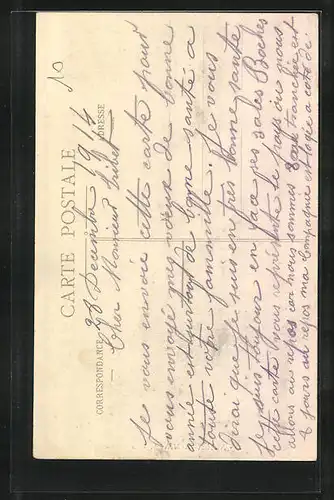 10
CARTE POSTALE
CORRESPONDANCE
ADRESSE
28 Décembre 1915
Cher Monsieur
Je vous envoie cette carte pour
vous envoyé mes vœux de bonne
année et surtout de bonne santé a
toute votre famille. Je vous
dirai que je suis en très bonne santé
je suis toujour en face ses sales Boches
cette carte vous représente le pays ou nous
allons au repos car nous sommes tranchée et
4 jours au repos ma Compagnie est logée a coté de